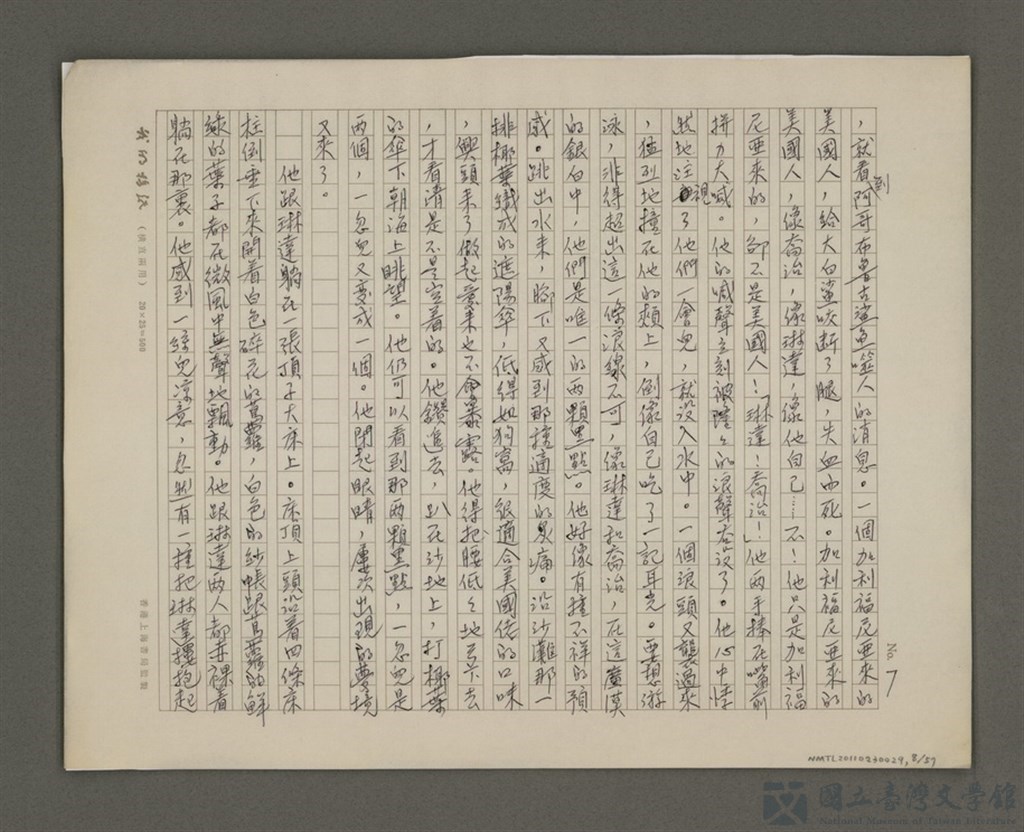 No 7
，就看到阿哥布魯古鯊魚噬人的消息。一個加利福尼亜來的
美國人，給大白鯊咬斷了腿，失血而死。加利福尼亜來的
美國人，像喬治，像琳達，像他自己……不！他只是加利福
尼亜來的，卻不是美國人！「琳達！喬治！」他两手捧在嘴前
拼力大喊。他的喊聲立刻被隆隆的浪聲吞没了。他心中怪
然地注視了他們一會兒，就没入水中。一個浪頭又襲過來
，猛烈地撞在他的頰上，倒像自己吃了一記耳光。要想游
泳，非得超出這一條浪線不可，像琳達和喬治，在這廣漠
的銀白中，他們是唯一的两顆黑點。他好像有種不祥的預
感。跳出水來，腳下又感到那種適度的炙痛。沿沙灘那一
排椰葉織成的遮陽傘，低得如狗窩，很適合美國佬的口味
，興頭來了做起愛來也不會暴露。他得把腰低低地彎下去
，才看清是不是空着的。他鑽進去，趴在沙地上，打椰葉
的傘下朝海上眺望。他仍可以看到那两顆黑點，一忽兒是
两個，一忽兒又變成一個。他閉起眼睛，屢次出現的夢境
又來了。
他跟琳達躺在一張頂子大床上。床頂上頭沿着四條床
柱倒垂下來開着白色碎花的蔦蘿，白色的紗帳跟蔦蘿的鮮
綠的葉子都在微風中無聲地飄動。他跟琳達两人都赤裸着
躺在那裏。他感到一絲兒涼意，忽然有一種把琳達摟抱起
（橫直兩用） 20×25=500
香港上海書局監製
NMTL20110240029, 8/57
國立臺灣文學館
National Museum of Taiwan Literature